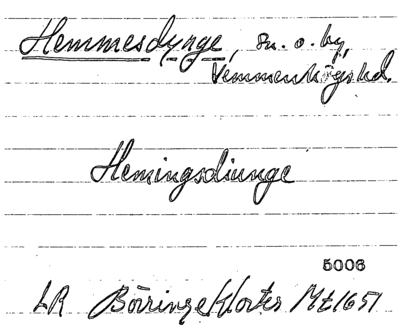 Hemmesdynge, sn. o. by,
Vemmenhögs hd.
Hemingsdiunge
5006
LR Börringe Kloster Mt 1651